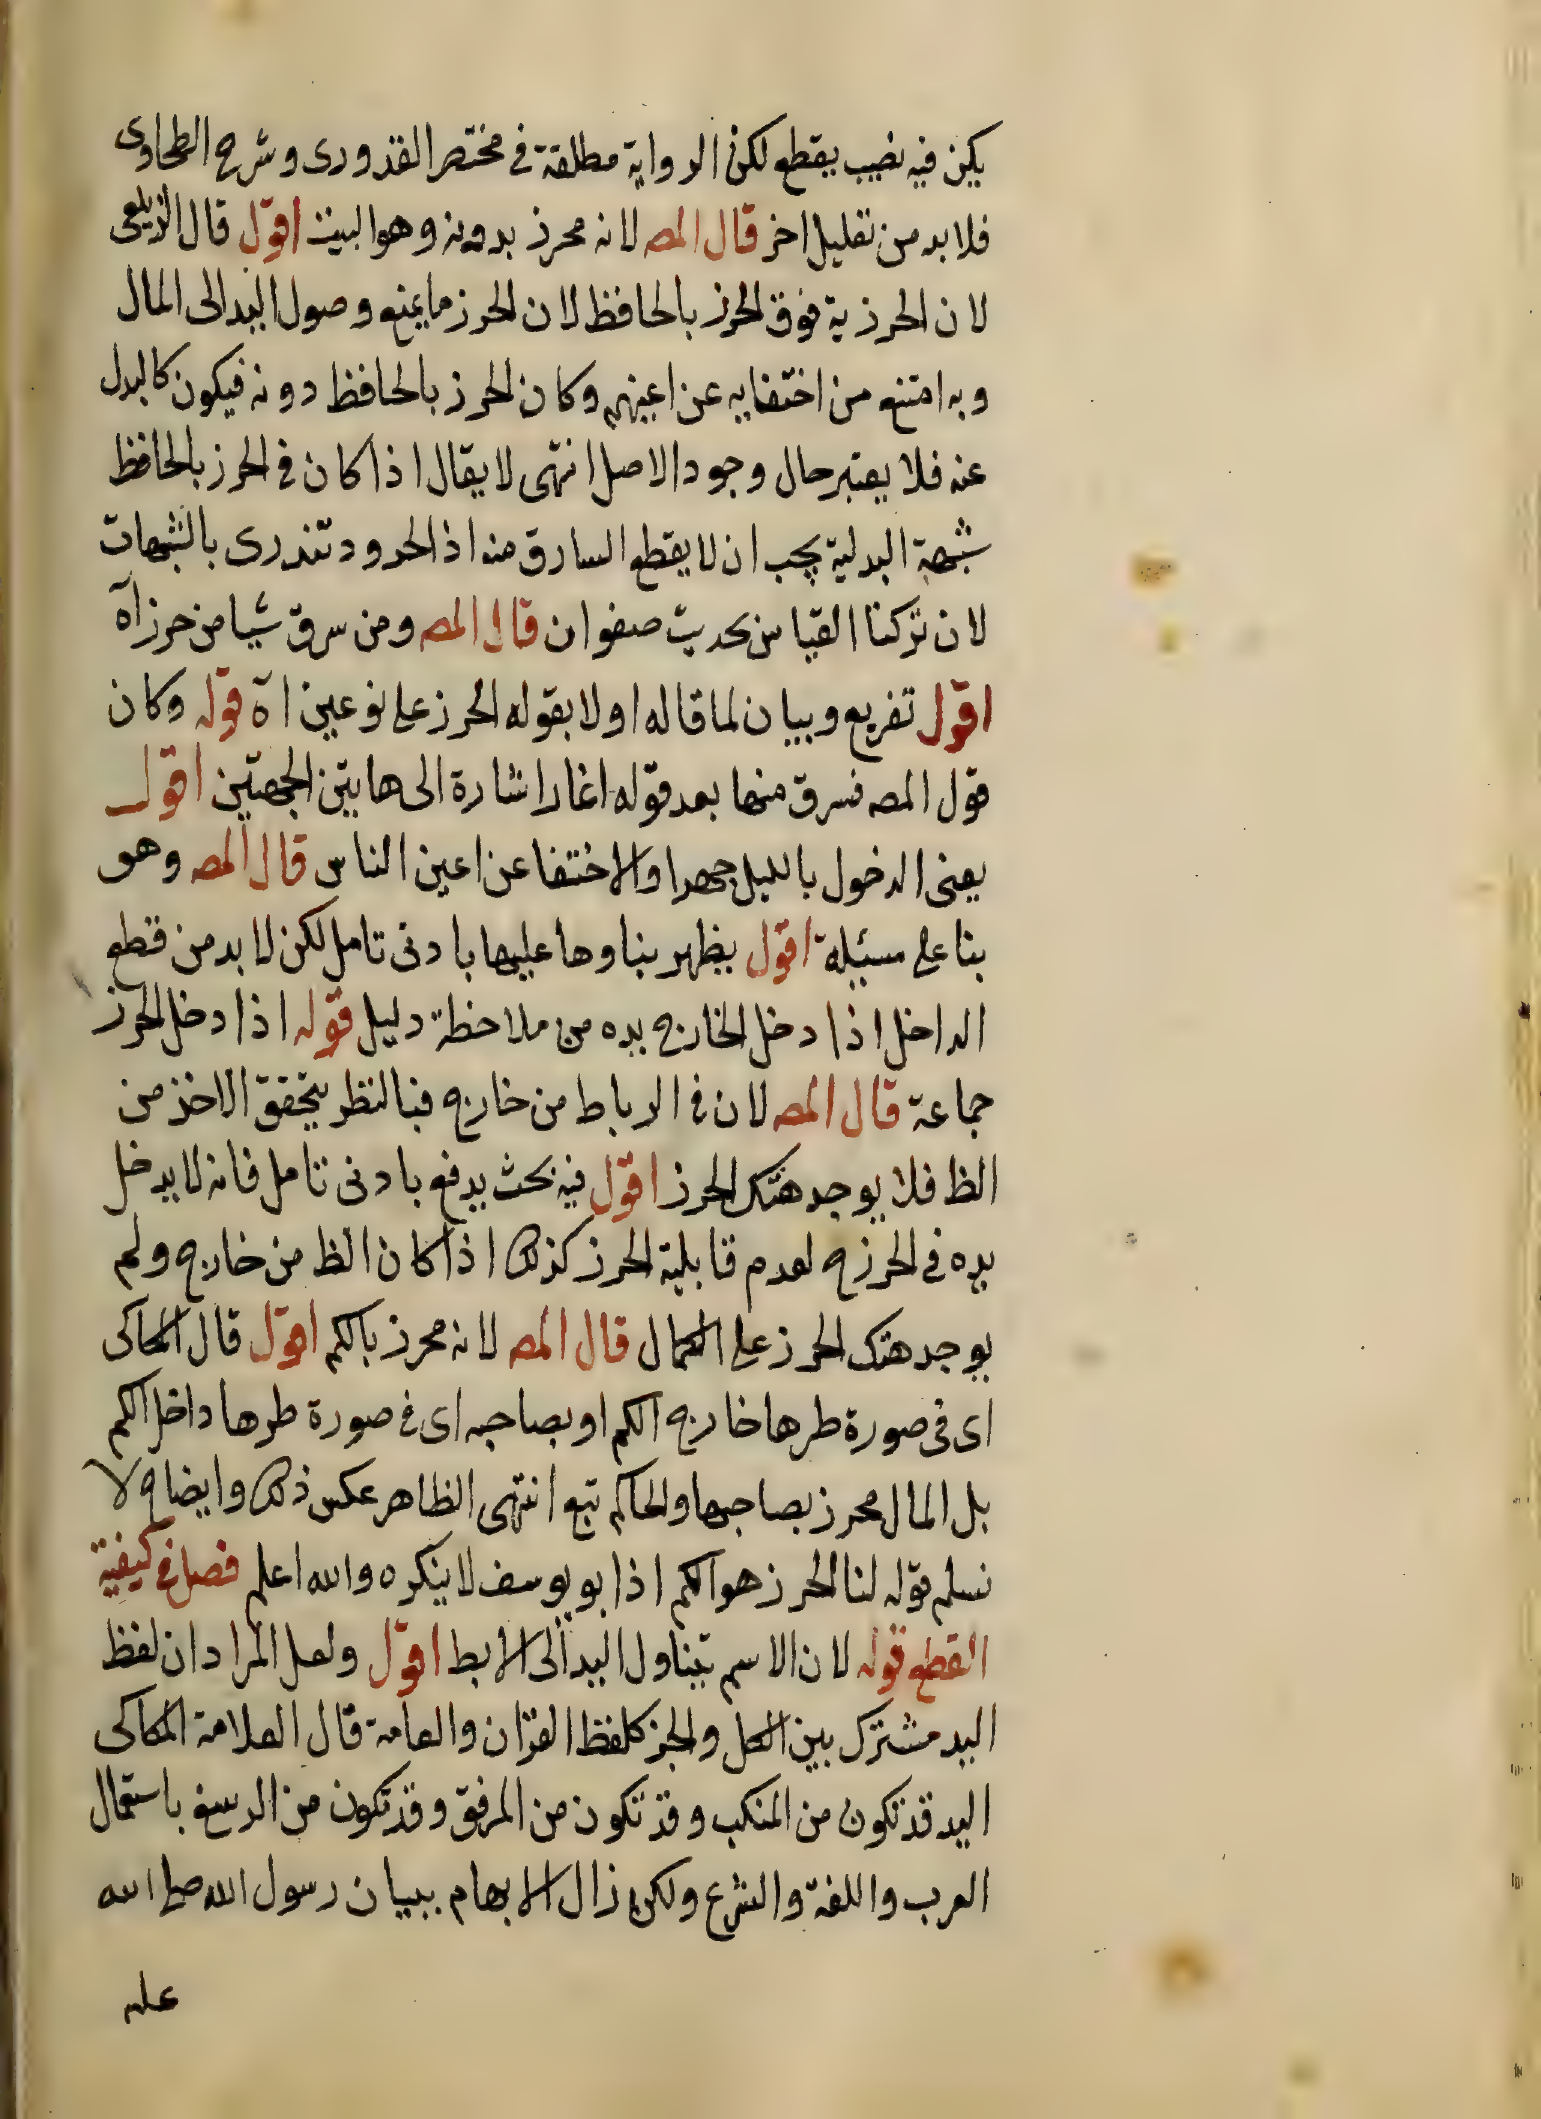 يكن فيه نصيب يقطع لكن الرواية مطلقة في مختصر القدوري وشرح الطحاوي
فلا بد من تعليل اخر قال المصـ لانه محرز بدونه وهو البيت اقول قال الزيلعي
لان الحرز به فوق الحرز بالحافظ لان الحرز ما يمنع وصول اليد الى المال
وبه امتنع من اختفايه عن اعينهم وكان الحرز بالحافظ دونه فيكون كالبدل
عنه فلا يعتبر حال وجود الاصل انتهى لا يقال اذا كان في الحرز بالحافظ
شبهة البدلية يجب ان لا يقطع السارق منه اذ الحدود تندرى بالشبهات
لان تركنا القياس بحديث صفوان قال المصـ ومن سرق شيا من حرز اه
اقول تفريع وبيان لما قاله اولا بقوله الحرز على نوعين اه قوله وكان
قول المصـ فسرق منها بعد قوله اغار اشارة الى هاتين الجهتين اقول
يعنى الدخول بالليل جهرا والاختفا عن اعين الناس قال المصـ وهو
بنا على مسئلة اقول يظهر بناوها عليها بادنى تامل لكن لا بد من قطع
الداخل اذا دخل الخارج يده من ملاحظة دليل قوله اذا دخل الحرز
جماعة قال المصـ لان في الرباط من خارج فبالنظر يتحقق الاخذ من
الظ فلا يوجد هتك الحرز اقول فيه بحث يدفع بادنى تامل فانه لا يدخل
يده في الحرز ح لعدم قابلية الحرز كذلك اذا كان الظ من خارج ولم
يوجد هتك الحرز على الكمال قال المصـ لانه محرز بالكم اقول قال الكاكى
اى في صورة طرها خارج الكم او بصاحبه اى في صورة طرها داخل الكم
بل المال محرز بصاحبها والكم تبع انتهى الظاهر عكس ذلك وايضا ح لا
نسلم قوله لنا الحرز هو الكم اذ ابو يوسف لا ينكره والله اعلم فصل في كيفية
القطع قوله لان الاسم يتناول اليد الى الابط اقول ولعل المراد ان لفظ
اليد مشترك بين الكل والجز كلفظ القران والعامة قال العلامة الكاكى
اليد قد تكون من المنكب وقد تكون من المرفق وقد تكون من الرسغ باستعمال
العرب واللغة والشرع ولكن زال الابهام ببيان رسول الله صلى الله
عليه